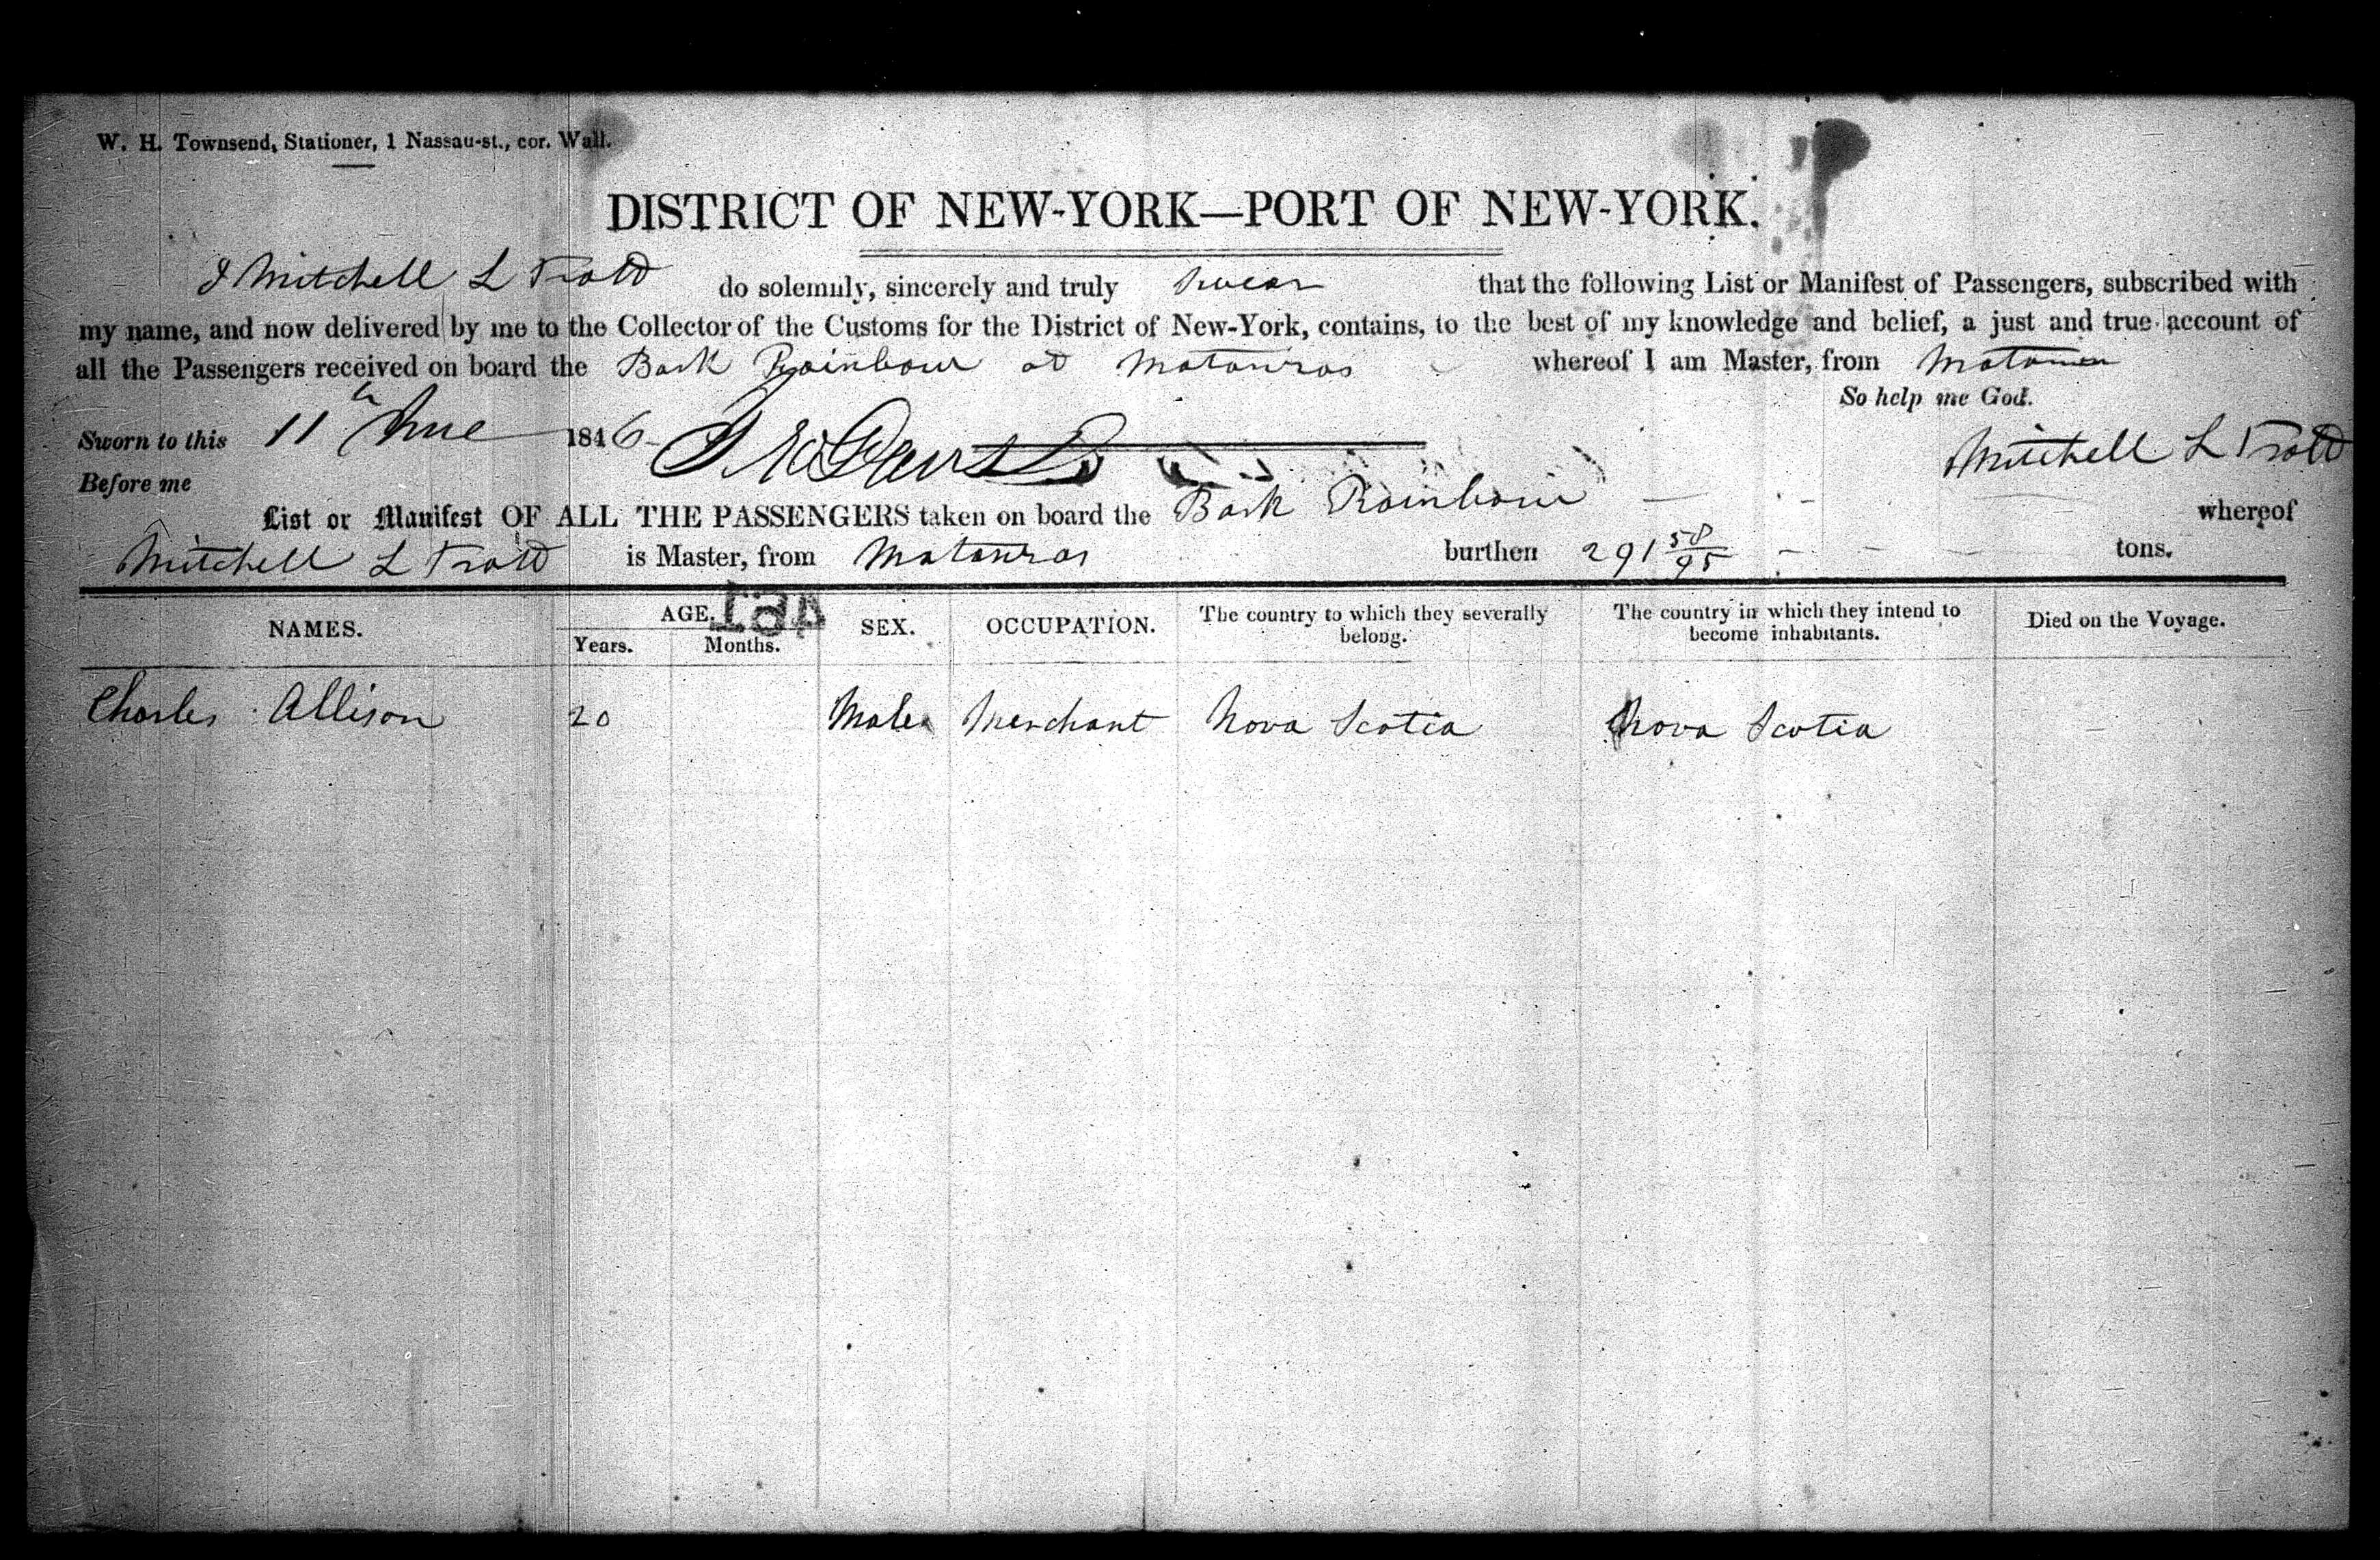 W. H. Townsend, Stationer, 1 Nassau-st., cor. Wall.
DISTRICT OF NEW-YORK—PORT OF NEW-YORK.
I Mitchell L Trott do solemnly, sincerely and truly swear that the following List or Manifest of Passengers, subscribed with
my name, and now delivered by me to the Collector of the Customs for the District of New-York, contains, to the best of my knowledge and belief, a just and true account of
all the Passengers received on board the Bark Rainbow at Matanzas whereof I am Master, from Matanzas
So help me God.
Sworn to this 11th June 1846
Mitchell L Trott
Before me
List or Manifest OF ALL THE PASSENGERS taken on board the Bark Rainbow whereof
Mitchell L Trott is Master, from Matanzas burthen 291 58/95 tons.
NAMES. AGE. SEX. OCCUPATION. The country to which they severally belong. The country in which they intend to become inhabitants. Died on the Voyage.
Years. Months.
Charles Allison 20 Male Merchant Nova Scotia Nova Scotia